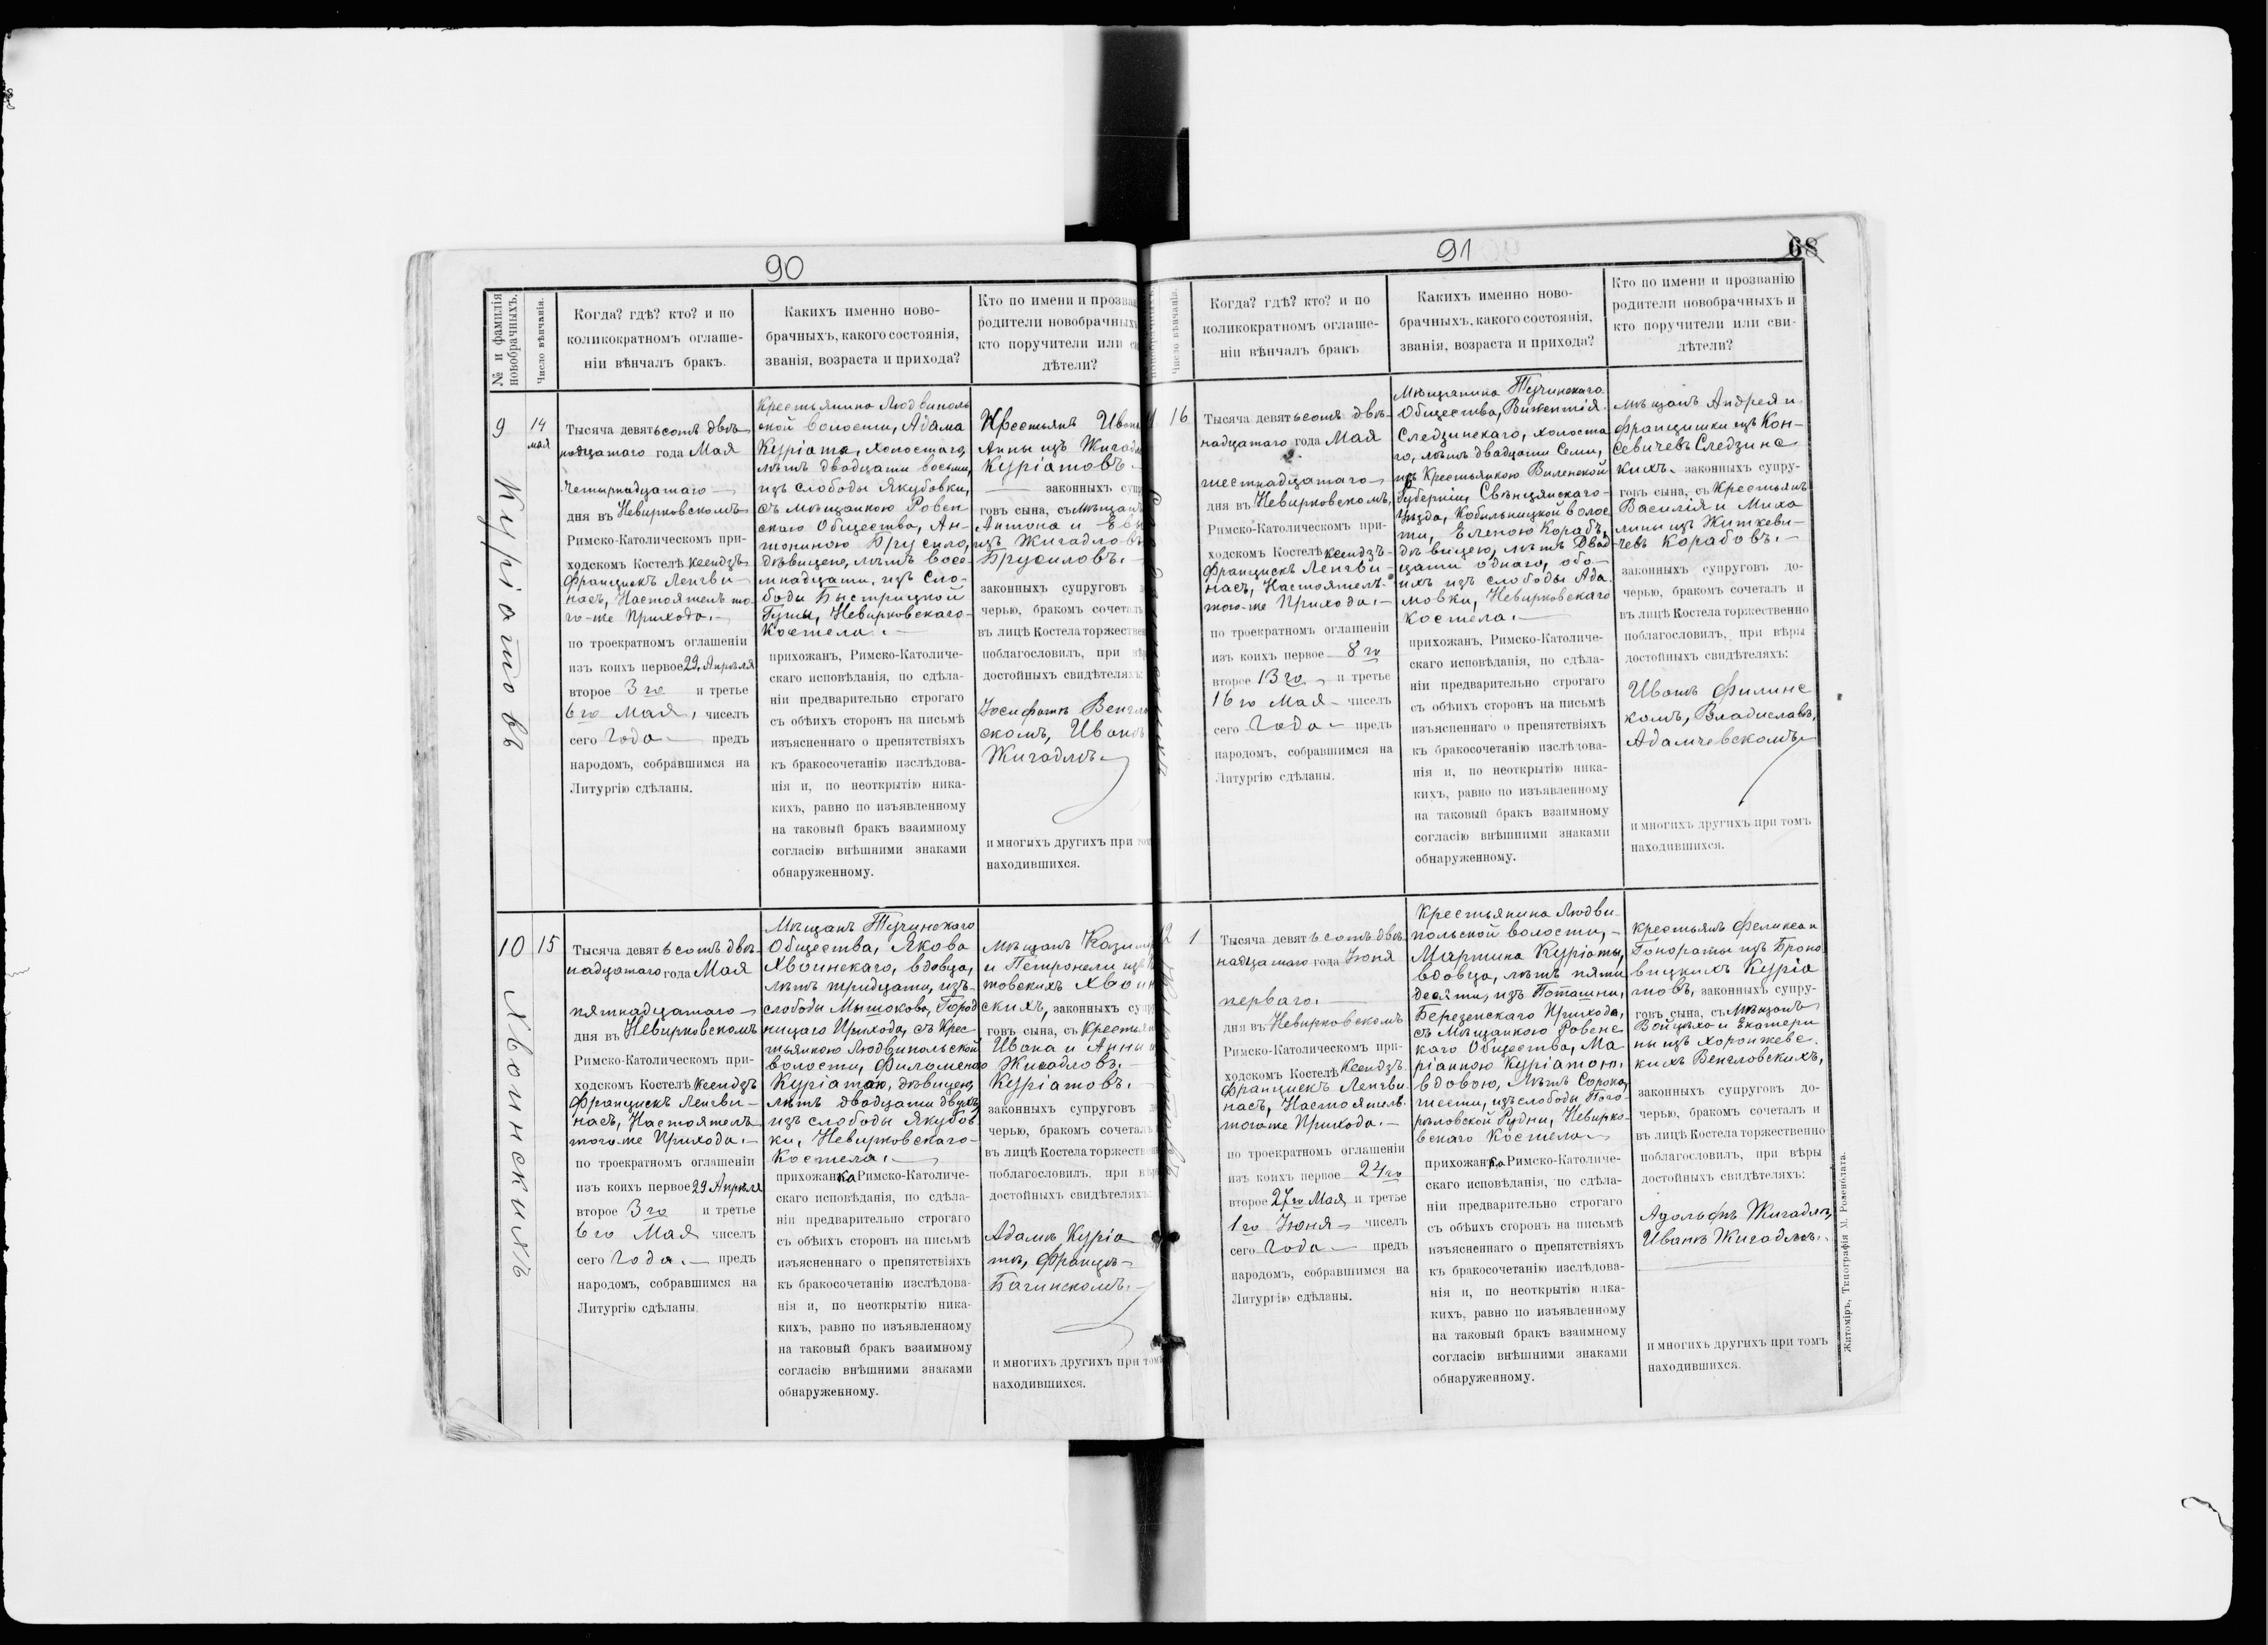 90
№ и фамилія
новобрачныхъ.
Число вѣнчанія.
Когда? гдѣ? кто? и по
коликократномъ оглаше-
ніи вѣнчалъ бракъ.
Какихъ именно ново-
брачныхъ, какого состоянія,
званія, возраста и прихода?
Кто по имени и прозва
родители новобрачныхъ
кто поручители или
дѣтели?
9
Куріатовъ
14
мая
Тысяча девятьсотъ двѣ-
надцатаго года Мая
Четырнадцатаго —
дня въ Невирковскомъ
Римско-Католическомъ при-
ходскомъ Костелѣ ксендзъ
Францискъ Ленгви-
насъ, Настоятель то-
го-же Прихода.—
по троекратномъ оглашеніи
изъ коихъ первое 29 Апрѣля
второе 3го и третье
6го Мая, чиселъ
сего Года — предъ
народомъ, собравшимся на
Литургію сдѣланы.
Крестьянина Людвиполь
ской волости, Адама
Куріата, холостаго,
лѣтъ двадцати восьми,
изъ слободы Якубовки,
съ мѣщанкою Ровен
скаго Общества, Ан-
тониною Брусило,
дѣвицею, лѣтъ восе-
мнадцати, изъ сло-
боды Быстрицкой
Гуты, Невирковскаго-
Костела.—
прихожанъ, Римско-Католиче-
скаго исповѣданія, по сдѣла-
ніи предварительно строгаго
съ обѣихъ сторонъ на письмѣ
изъясненнаго о препятствіяхъ
къ бракосочетанію изслѣдова-
нія и, по неоткрытію ника-
кихъ, равно по изъявленному
на таковый бракъ взаимному
согласію внѣшними знаками
обнаруженному.
Крестьянъ Ивана
Анны изъ Жигадл
Куріатовъ —
— законныхъ суп
говъ сына, съ мѣщанъ
Антона и Евы
изъ Жигадловъ
Брусиловъ.—
законныхъ супруговъ
черью, бракомъ сочеталъ
въ лицѣ Костела торжествен
поблагословилъ, при вѣ
достойныхъ свидѣтеляхъ:
Іосифатѣ Венгло
скомъ, Иванѣ
Жигадлѣ.
и многихъ другихъ при том
находившихся.
10
Хвоинскихъ
15
Тысяча девятьсотъ двѣ-
надцатаго года Мая
пятнадцатаго —
дня въ Невирковскомъ
Римско-Католическомъ при-
ходскомъ Костелѣ Ксендзъ
Францискъ Ленгви-
насъ, Настоятель
того-же Прихода.—
по троекратномъ оглашеніи
изъ коихъ первое 29 Апрѣля
второе 3го и третье
6го Мая чиселъ
сего Года.— предъ
народомъ, собравшимся на
Литургію сдѣланы.
Мѣщанъ Тучинскаго
Общества, Якова
Хвоинскаго, вдовца,
лѣтъ тридцати, изъ-
слободы Мытокова, Город
ницаго Прихода, съ Крес
тьянкою Людвипольской
волости, Филоменою
Куріатаю, дѣвицею,
лѣтъ двадцати двухъ,
изъ слободы Якубов
ки, Невирковскаго-
Костела.—
прихожанка Римско-Католиче-
скаго исповѣданія, по сдѣла-
ніи предварительно строгаго
съ обѣихъ сторонъ на письмѣ
изъясненнаго о препятствіяхъ
къ бракосочетанію изслѣдова-
нія и, по неоткрытію ника-
кихъ, равно по изъявленному
на таковый бракъ взаимному
согласію внѣшними знаками
обнаруженному.
Мѣщанъ Казими
и Петронели изъ
товскихъ Хвоин
скихъ, законныхъ су
говъ сына, съ Крестьян
Ивана и Анны
Жигадловъ.—
Куріатовъ.
законныхъ супруговъ
черью, бракомъ сочеталъ
въ лицѣ Костела торжествен
поблагословилъ, при вѣр
достойныхъ свидѣтеляхъ
Адамѣ Куріа
тѣ, Францѣ
Багинскомъ.—
и многихъ другихъ при том
находившихся.
91
68
Число вѣнчанія.
Когда? гдѣ? кто? и по
коликократномъ оглаше-
ніи вѣнчалъ бракъ
Какихъ именно ново-
брачныхъ, какого состоянія,
званія, возраста и прихода?
Кто по имени и прозванію
родители новобрачныхъ и
кто поручители или сви-
дѣтели?
16
Тысяча девятьсотъ двѣ-
надцатаго года Мая
шестнадцатаго
дня въ Невирковскомъ,
Римско-Католическомъ при-
ходскомъ Костелѣ ксендзъ-
Францискъ Ленгви-
насъ, Настоятель
того-же Прихода.—
по троекратномъ оглашеніи
изъ коихъ первое 8го
второе 13го и третье
16го Мая чиселъ
сего Года — предъ
народомъ, собравшимся на
Литургію сдѣланы.
Мѣщанина Тучинскаго
Общества, Викентія
Следзинскаго, холоста
го, лѣтъ двадцати семи,
съ Крестьянкою Виленской
Губерніи, Свѣнцянскаго-
Уѣзда, Кобыльницкой волос
ти, Еленою Корабъ,
дѣвицею, лѣтъ Двад
цати одного, обо-
ихъ изъ слободы Ада
мовки, Невирковскаго
Костела.—
прихожанъ, Римско-Католиче-
скаго исповѣданія, по сдѣла-
ніи предварительно строгаго
съ обѣихъ сторонъ на письмѣ
изъясненнаго о препятствіяхъ
къ бракосочетанію изслѣдова-
нія и, по неоткрытію ника-
кихъ, равно по изъявленному
на таковый бракъ взаимному
согласію внѣшними знаками
обнаруженному.
мѣщанъ Андрея и
Францишки изъ Кон-
севичевъ Следзинс
кихъ. законныхъ супру-
говъ сына, съ Крестьянъ
Василія и Миха
лины изъ Житкеви-
чевъ Корабовъ.—
законныхъ супруговъ до-
черью, бракомъ сочеталъ и
въ лицѣ Костела торжественно
поблагословилъ, при вѣры
достойныхъ свидѣтеляхъ:
Иванѣ Филинс
комъ, Владиславѣ
Адамчевскомъ
и многихъ другихъ при томъ
находившихся.
1
Тысяча девятьсотъ двѣ-
надцатаго года Іюня
перваго.
дня въ Невирковскомъ
Римско-Католическомъ при-
ходскомъ Костелѣ Ксендзъ
Францискъ Ленгви-
насъ, Настоятель
того же Прихода.—
по троекратномъ оглашеніи
изъ коихъ первое 24го
второе 27го Мая и третье
1го Іюня чиселъ
сего Года — предъ
народомъ, собравшимся на
Литургію сдѣланы.
Крестьянина Людви-
польской волости, —
Мартина Куріаты,
вдовца, лѣтъ пяти
десяти, изъ Поташни,
Березенскаго Прихода,
съ Мѣщанкою Ровенс
каго Общества, Ма
ріанною Куріатою,
вдовою, лѣтъ Сорока
шести, изъ слободы Пого
рѣловской Рудни, Невирко-
вскаго Костела
прихожанка Римско-Католиче-
скаго исповѣданія, по сдѣла-
ніи предварительно строгаго
съ обѣихъ сторонъ на письмѣ
изъясненнаго о препятствіяхъ
къ бракосочетанію изслѣдова-
нія и, по неоткрытію ника-
кихъ, равно по изъявленному
на таковый бракъ взаимному
согласію внѣшними знаками
обнаруженному.
крестьянъ Феликса и
Гонораты изъ Броно
вицкихъ Куріа
товъ, законныхъ супру-
говъ сына, съ Мѣщанъ
Войцѣха и Екатери
ны изъ Хоронжевс
кихъ Венгловскихъ,
законныхъ супруговъ до-
черью, бракомъ сочеталъ и
въ лицѣ Костела торжественно
поблагословилъ, при вѣры
достойныхъ свидѣтеляхъ:
Адольфѣ Жигадлѣ,
Иванѣ Жигадлѣ.
и многихъ другихъ при томъ
находившихся.
Житоміръ, Типографія М. Розенблата.